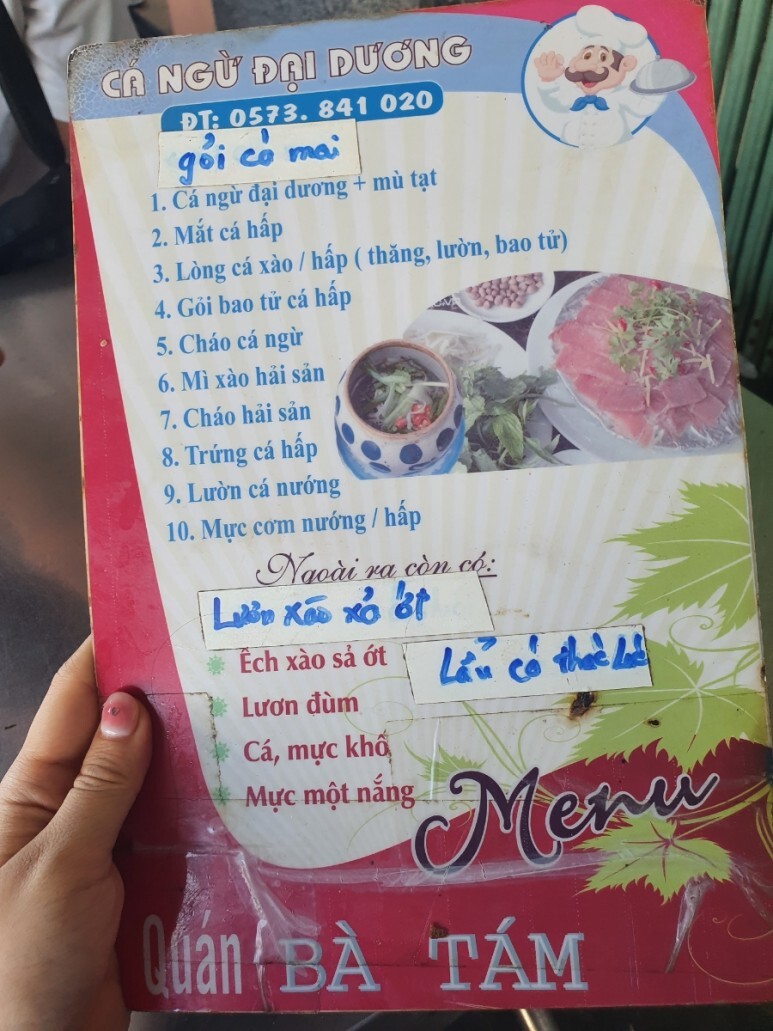 CÁ NGỪ ĐẠI DƯƠNG
ĐT: 0573. 841 020
gỏi cá mai
1. Cá ngừ đại dương + mù tạt
2. Mắt cá hấp
3. Lòng cá xào / hấp ( thăng, lườn, bao tử)
4. Gỏi bao tử cá hấp
5. Cháo cá ngừ
6. Mì xào hải sản
7. Cháo hải sản
8. Trứng cá hấp
9. Lườn cá nướng
10. Mực cơm nướng / hấp
Ngoài ra còn có:
Lươn xào xả ớt
Ếch xào sả ớt
Lẩu cá thác lác
Lươn đùm
Cá, mực khô
Mực một nắng
Menu
Quán BÀ TÁM